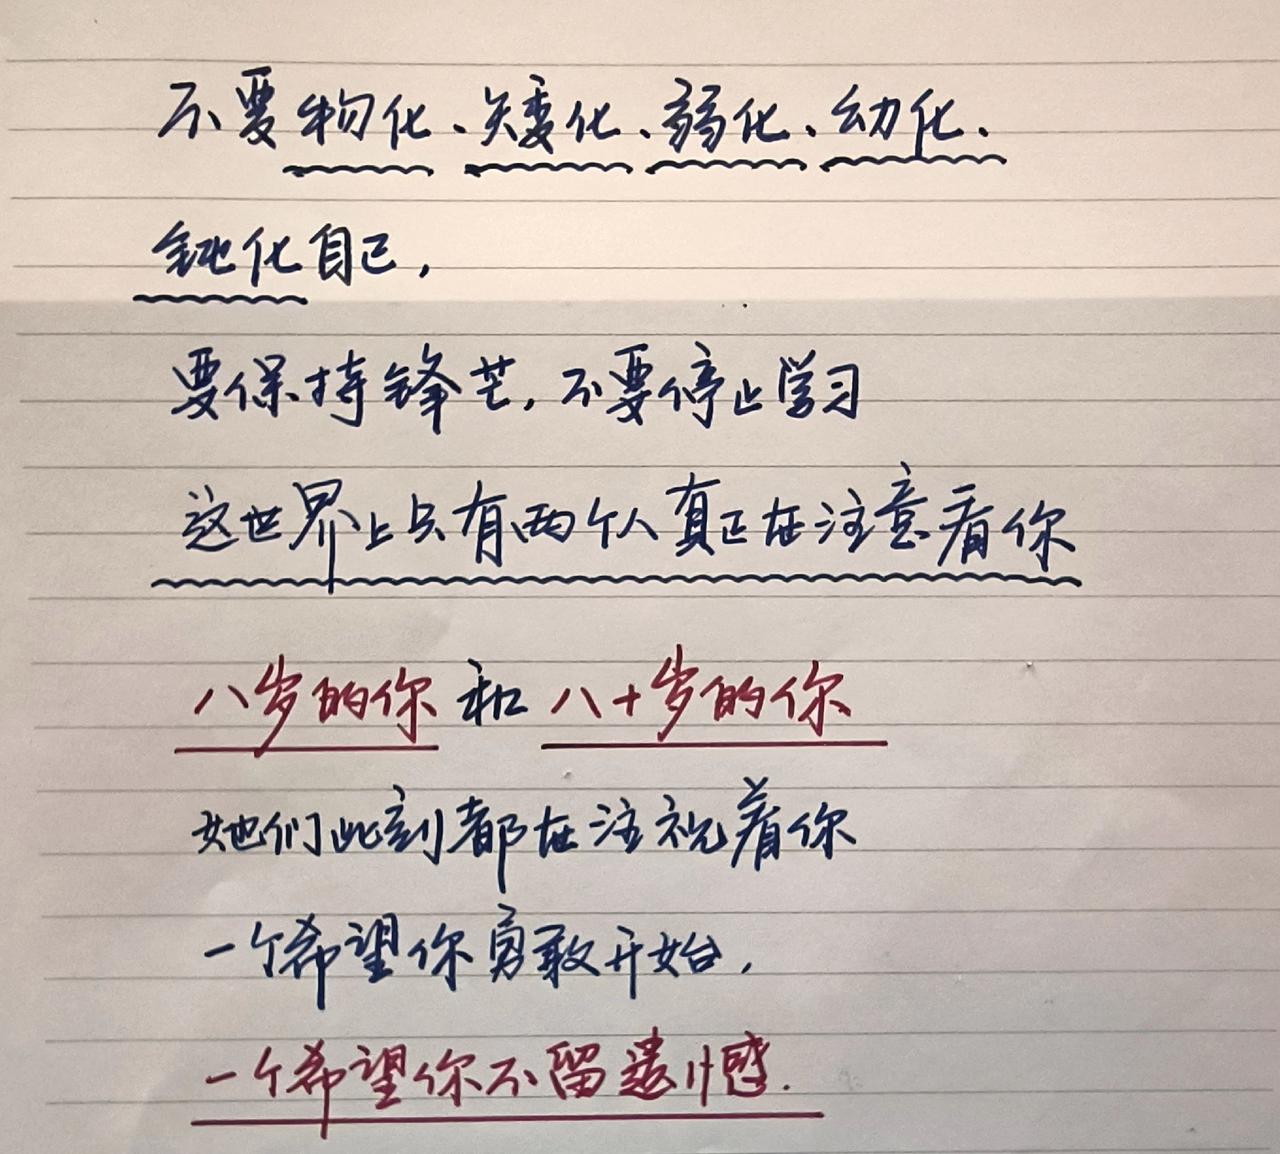 不要物化、矮化、弱化、幼化、
钝化自己，
要保持锋芒，不要停止学习
这世界上只有两个人真正在注意着你
八岁的你 和 八十岁的你
她们此刻都在注视着你
一个希望你勇敢开始，
一个希望你不留遗憾.